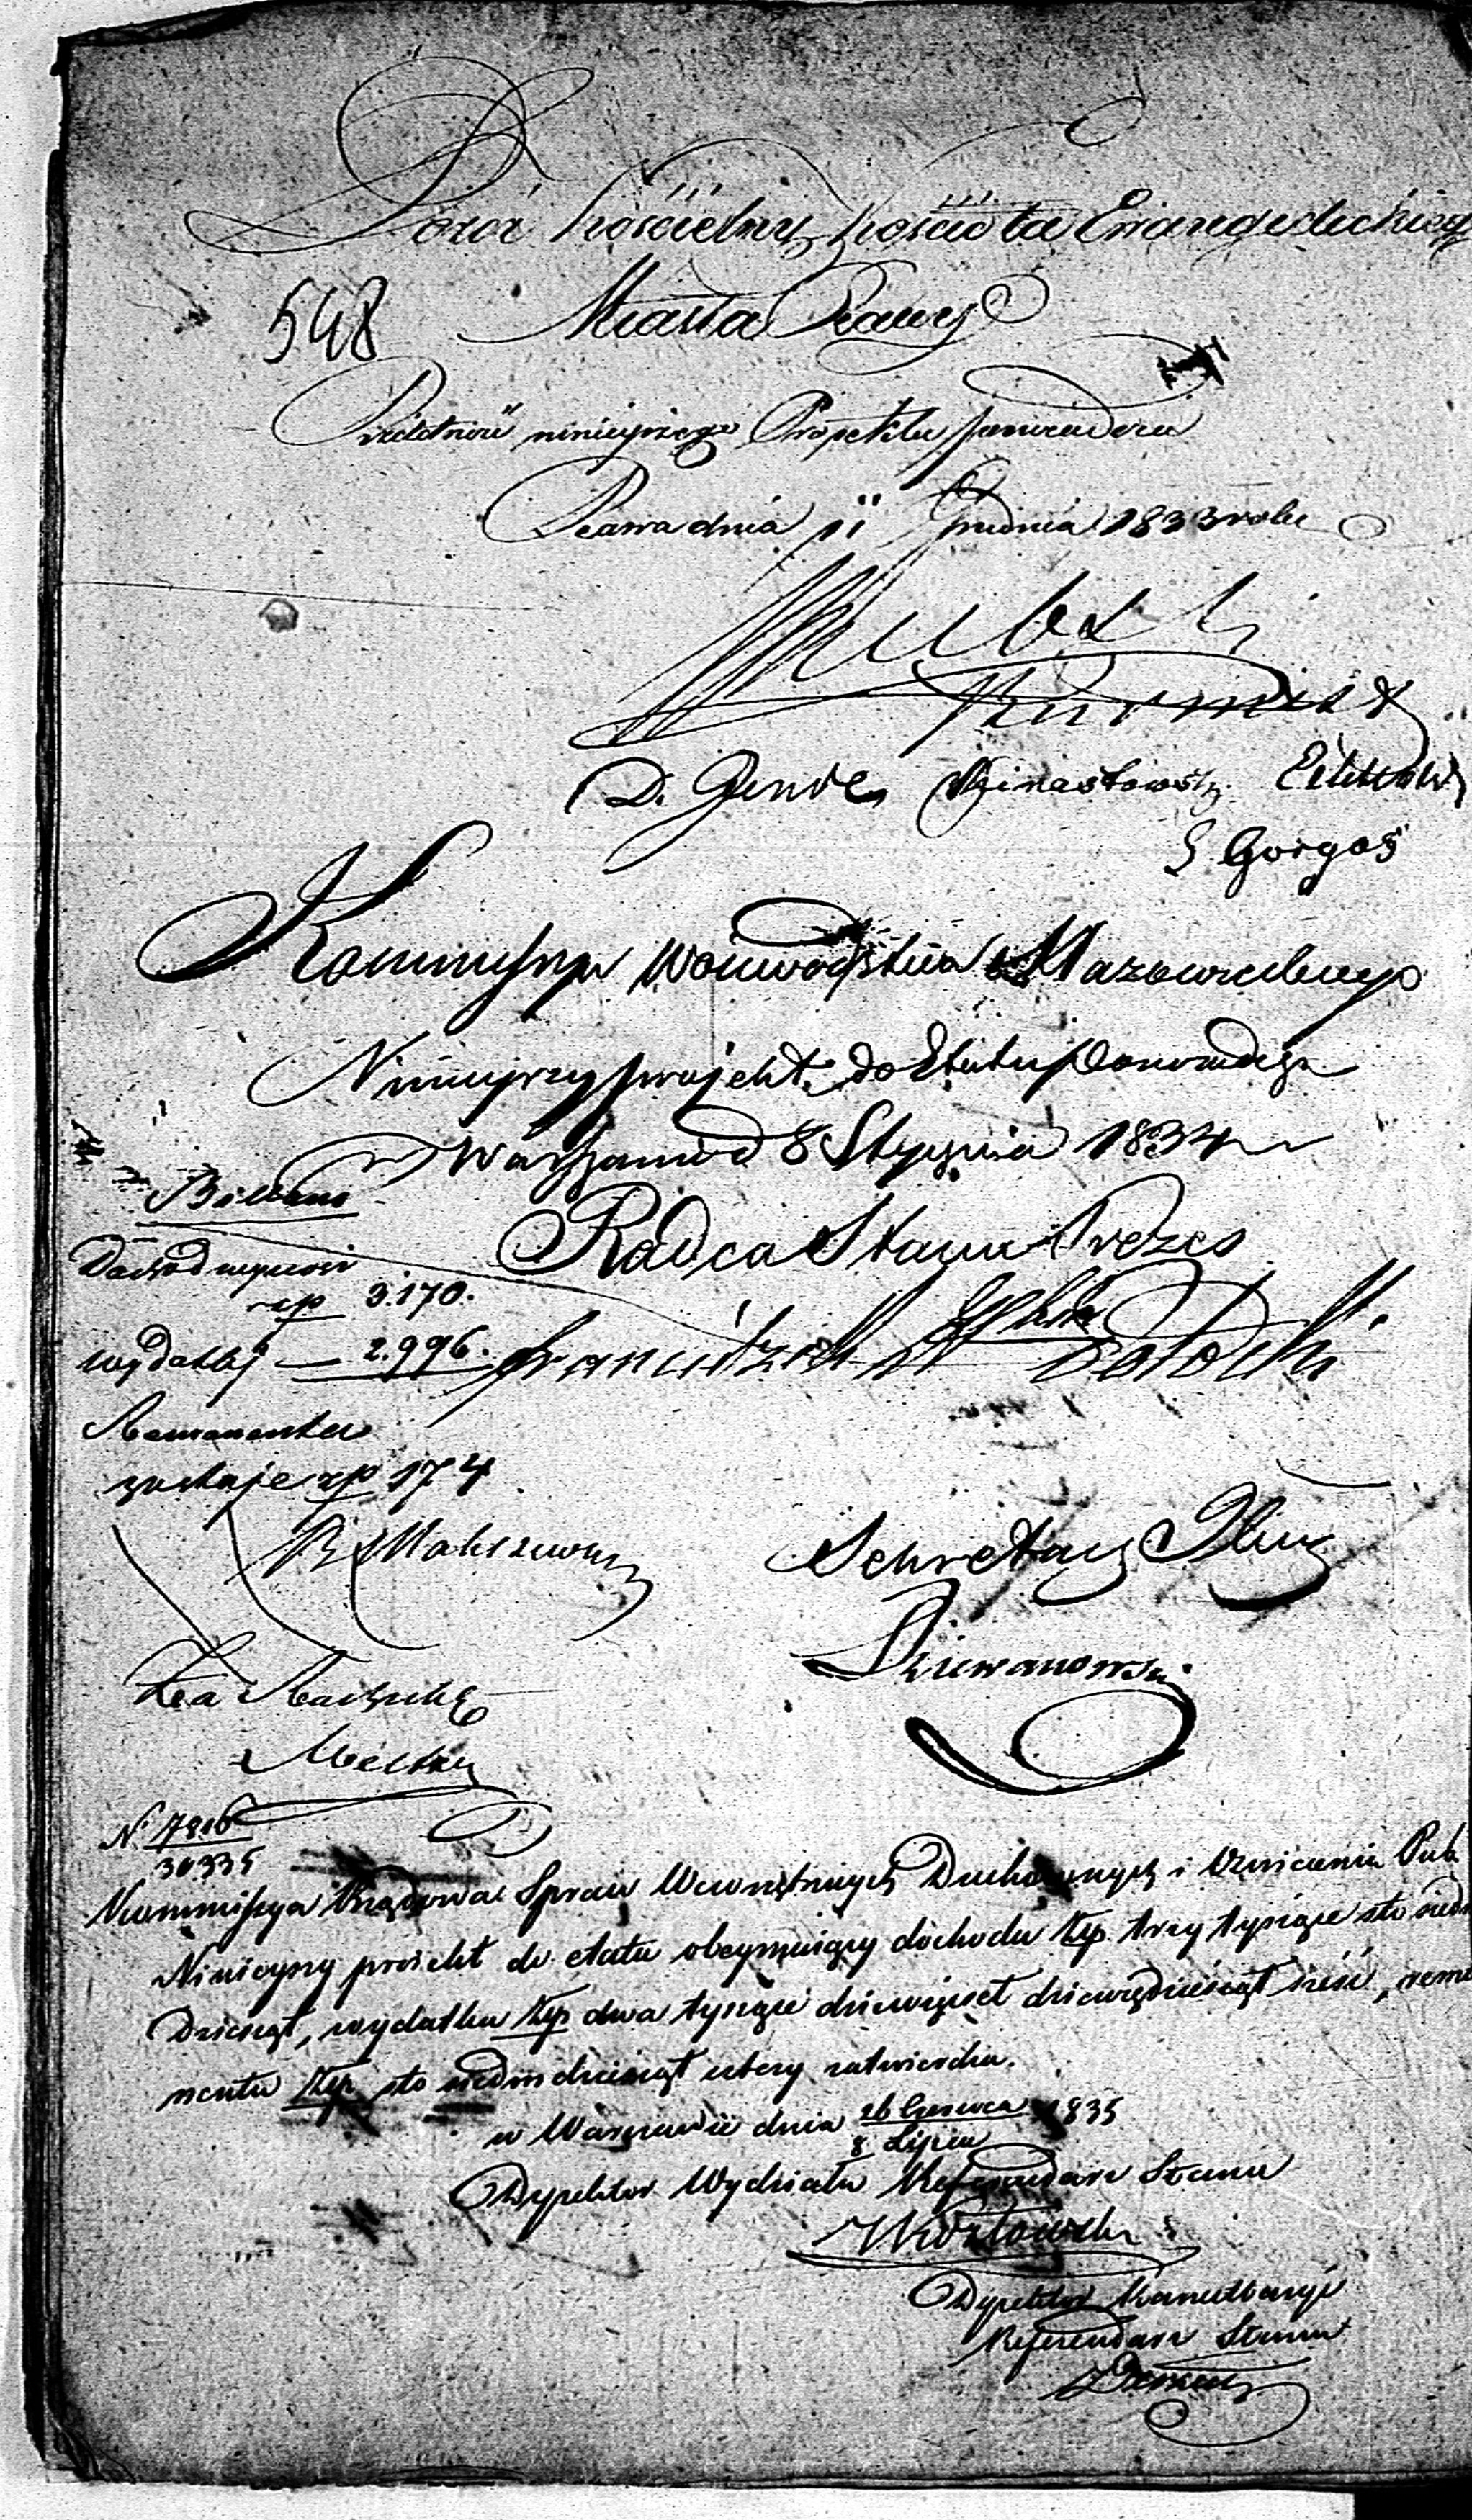 Dozór kościelny kościoła Ewangelickieg
Miasta Rawy
548
Rzetelność niniejszego Projektu poświadcza
Rawa dnia 11 Grudnia 1833 roku
D. Genre
S Gorgas
Kommissya Woiewództwa Mazowieckiego
Ninieyszy projekt do Etatu potwierdza
Warszawa d 8 Stycznia 1834
Radca Stanu Prezes
Bilans
Dochód wynosi
złp 3.170.
wydatki — 2.996.
Franciszek Potocki
Remanentu
zostaje złp 174
Sekretarz Jlny
Dziewanowski
Za Radzcę
N. 7816
30335
Kommissya Rządowa Spraw Wewnętrznych Duchownych i Oświecenia Pub
Ninieyszy proiekt do etatu obeymuiący dochodu złp trzy tysiące sto siedm
dziesiąt, wydatku złp dwa tysiące dziewięset dziewiędziesiąt sześć, rema
nentu złp sto siedmdziesiąt cztery zatwierdza.
w Warszawie dnia 26 Czerwca 1835
8 Lipca
Dyrektor Wydziału Referendarz Stanu
Kozłowski
Dyrektor Kancellaryi
Referendarz Stanu